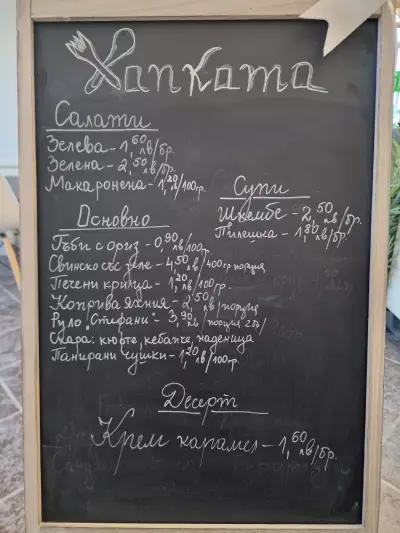 Хапката
Салати
Зелева - 1,60 лв/бр.
Зелена - 2,50 лв/бр.
Макаронена - 1,20 лв/100гр.
Супи
Шкембе - 2,50 лв/бр.
Пилешка - 1,80 лв/бр.
Основно
Гъби с ориз - 0,90 лв/100гр.
Свинско със зеле - 4,50 лв/400гр порция
Печени крилца - 1,20 лв/100гр.
Коприва яхния - 2,50 лв/порция
Руло "Стефани" - 3,90 лв/порция
Скара: кюфте, кебапче, наденица
Панирани сушки - 1,20 лв/100гр.
Десерт
Крем карамел - 1,60 лв/бр.